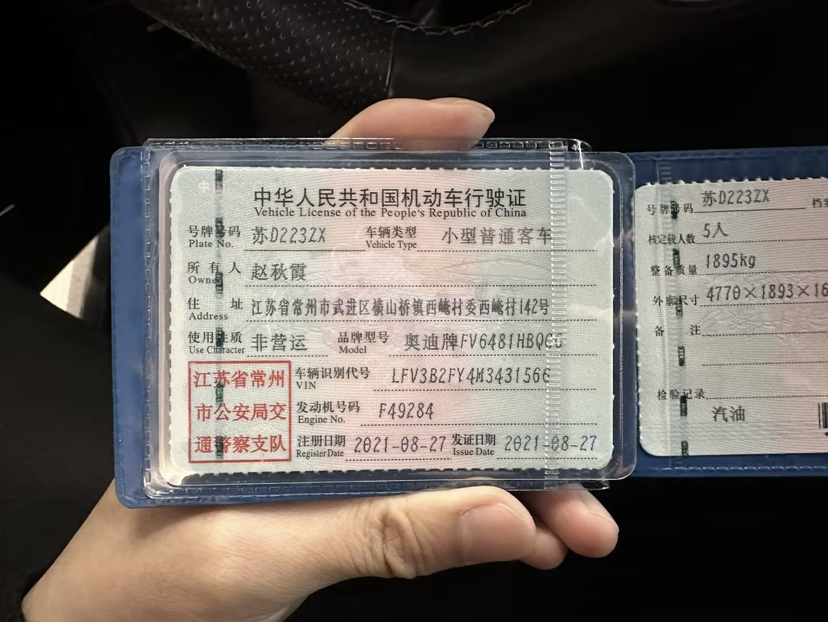 中华人民共和国机动车行驶证
Vehicle License of the People's Republic of China
号牌号码 苏D223ZX 车辆类型 小型普通客车
Plate No. Vehicle Type
所有人 赵秋霞
Owner
住址 江苏省常州市武进区横山桥镇西崦村委西崦村142号
Address
使用性质 非营运 品牌型号 奥迪牌FV6481HBQCG
Use Character Model
江苏省常州
市公安局交
通警察支队
车辆识别代号 LFV3B2FY4M3431566
VIN
发动机号码 F49284
Engine No.
注册日期 2021-08-27 发证日期 2021-08-27
Register Date Issue Date
号牌号码 苏D223ZX
核定载人数 5人
整备质量 1895kg
外廓尺寸 4770×1893×16
备注
检验记录
汽油